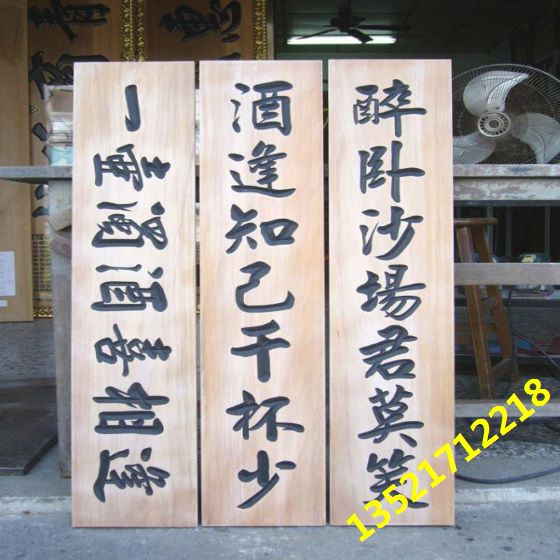 醉卧沙場君莫笑
酒逢知己千杯少
一壺濁酒喜相逢
13521712218